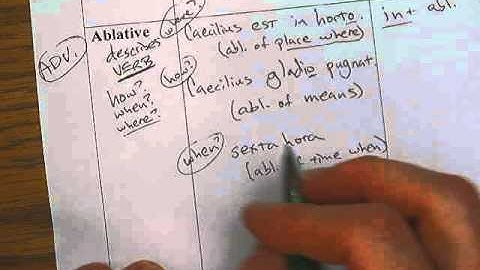 ADV.
Ablative
describes
VERB
how?
when?
where?
where?
Caecilius est in horto.
(abl. of place where)
in + abl.
how?
Caecilius gladio pugnat.
(abl. of means)
when?
sexta hora
(abl. time when)